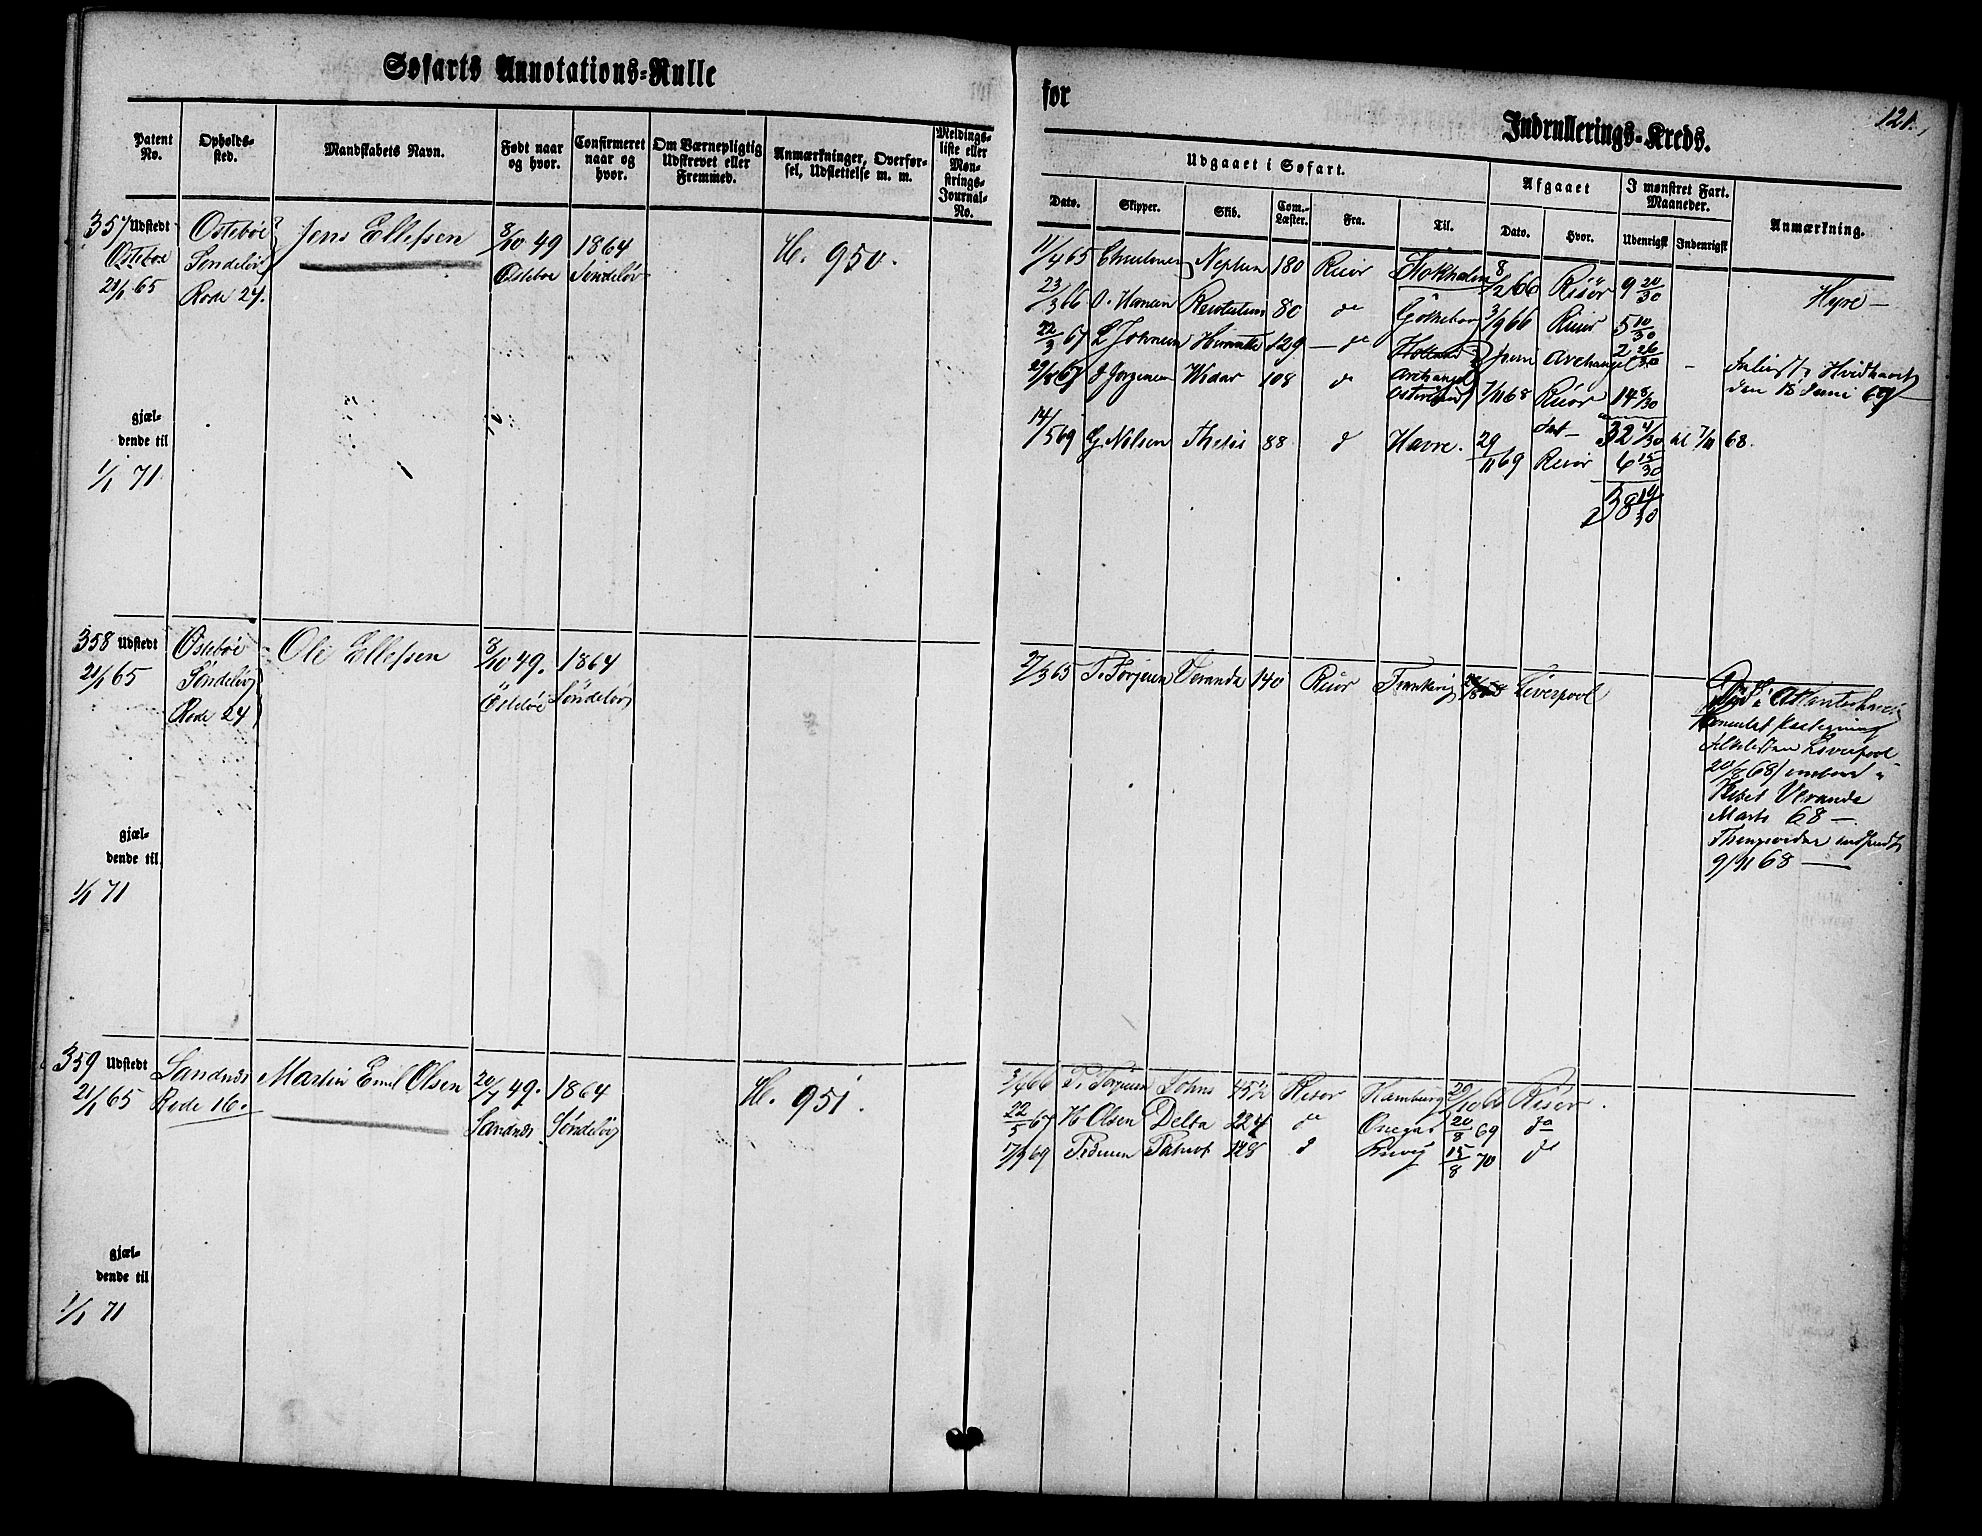 Søfarts Annotations-Rulle
for
Indrullerings-Kreds.
121.
Patent No.
Opholds-sted.
Mandskabets Navn.
Født naar og hvor.
Confirmeret naar og hvor.
Om Værnepligtig Udskrevet eller Fremmed.
Anmærkninger, Overførsel, Udslettelse m. m.
Meldingsliste eller Mønstrings-Journal-No.
Udgaaet i Søfart.
Dato.
Skipper.
Skib.
Com.-Læster.
Fra.
Til.
Afgaaet
Dato.
Hvor.
I mønstret Fart. Maaneder.
Udenrigsk
Indenrigsk
Anmærkning.
357 Udstedt Ostebøe Jens Ellefsen 8/10 49 1864 H. 950.
Ostebøe Søndeløv Ostebøe Søndeløv
21/1 65 Rode 24.
gjæl-
dende til
1/1 71
11/4 65 Neptun 180 Risør Stokholm 8/2 66 Risør 9 20/30 Hyre —
23/3 66 O. Hansen 80 do Gøtheborg 3/9 66 Risør 5 10/30
22/3 67 129 — do Holland Juni Archangel 2 26/30
Widar 108 do Archangel
7/11 68 Risør 14 8/30 den 18 Juni 69
32 4/30 til 7/11 68.
14/5 69 G. Nilsen Thetis 88 do Havre. 29/11 69 Risør 6 15/30
38 19/30
358 Udstedt Ostebøe Ole Ellefsen 8/10 49. 1864
21/1 65 Søndeløv Ostebøe Søndeløv
Rode 24
gjæl-
dende til
1/1 71
27/3 65 Veranda 140 Risør Liverpool Død i Atlanterhavet
Liverpool
20/8 68) ombord i
Skibet Veranda
Marts 68 —
9/11 68 —
359 Udstedt Sandnæs Martin Emil Olsen 20/7 49. 1864 H. 951.
21/1 65 Rode 16. Sandnæs Søndeløv
gjæl-
dende til
1/1 71
3/4 66 Johns 45½ Risør Hamburg 29/10 66 Risør.
22/5 67 H Olsen Delta 224 do Onega 20/8 69 do
17/3 69 Patriot 128 do 15/8 70 do